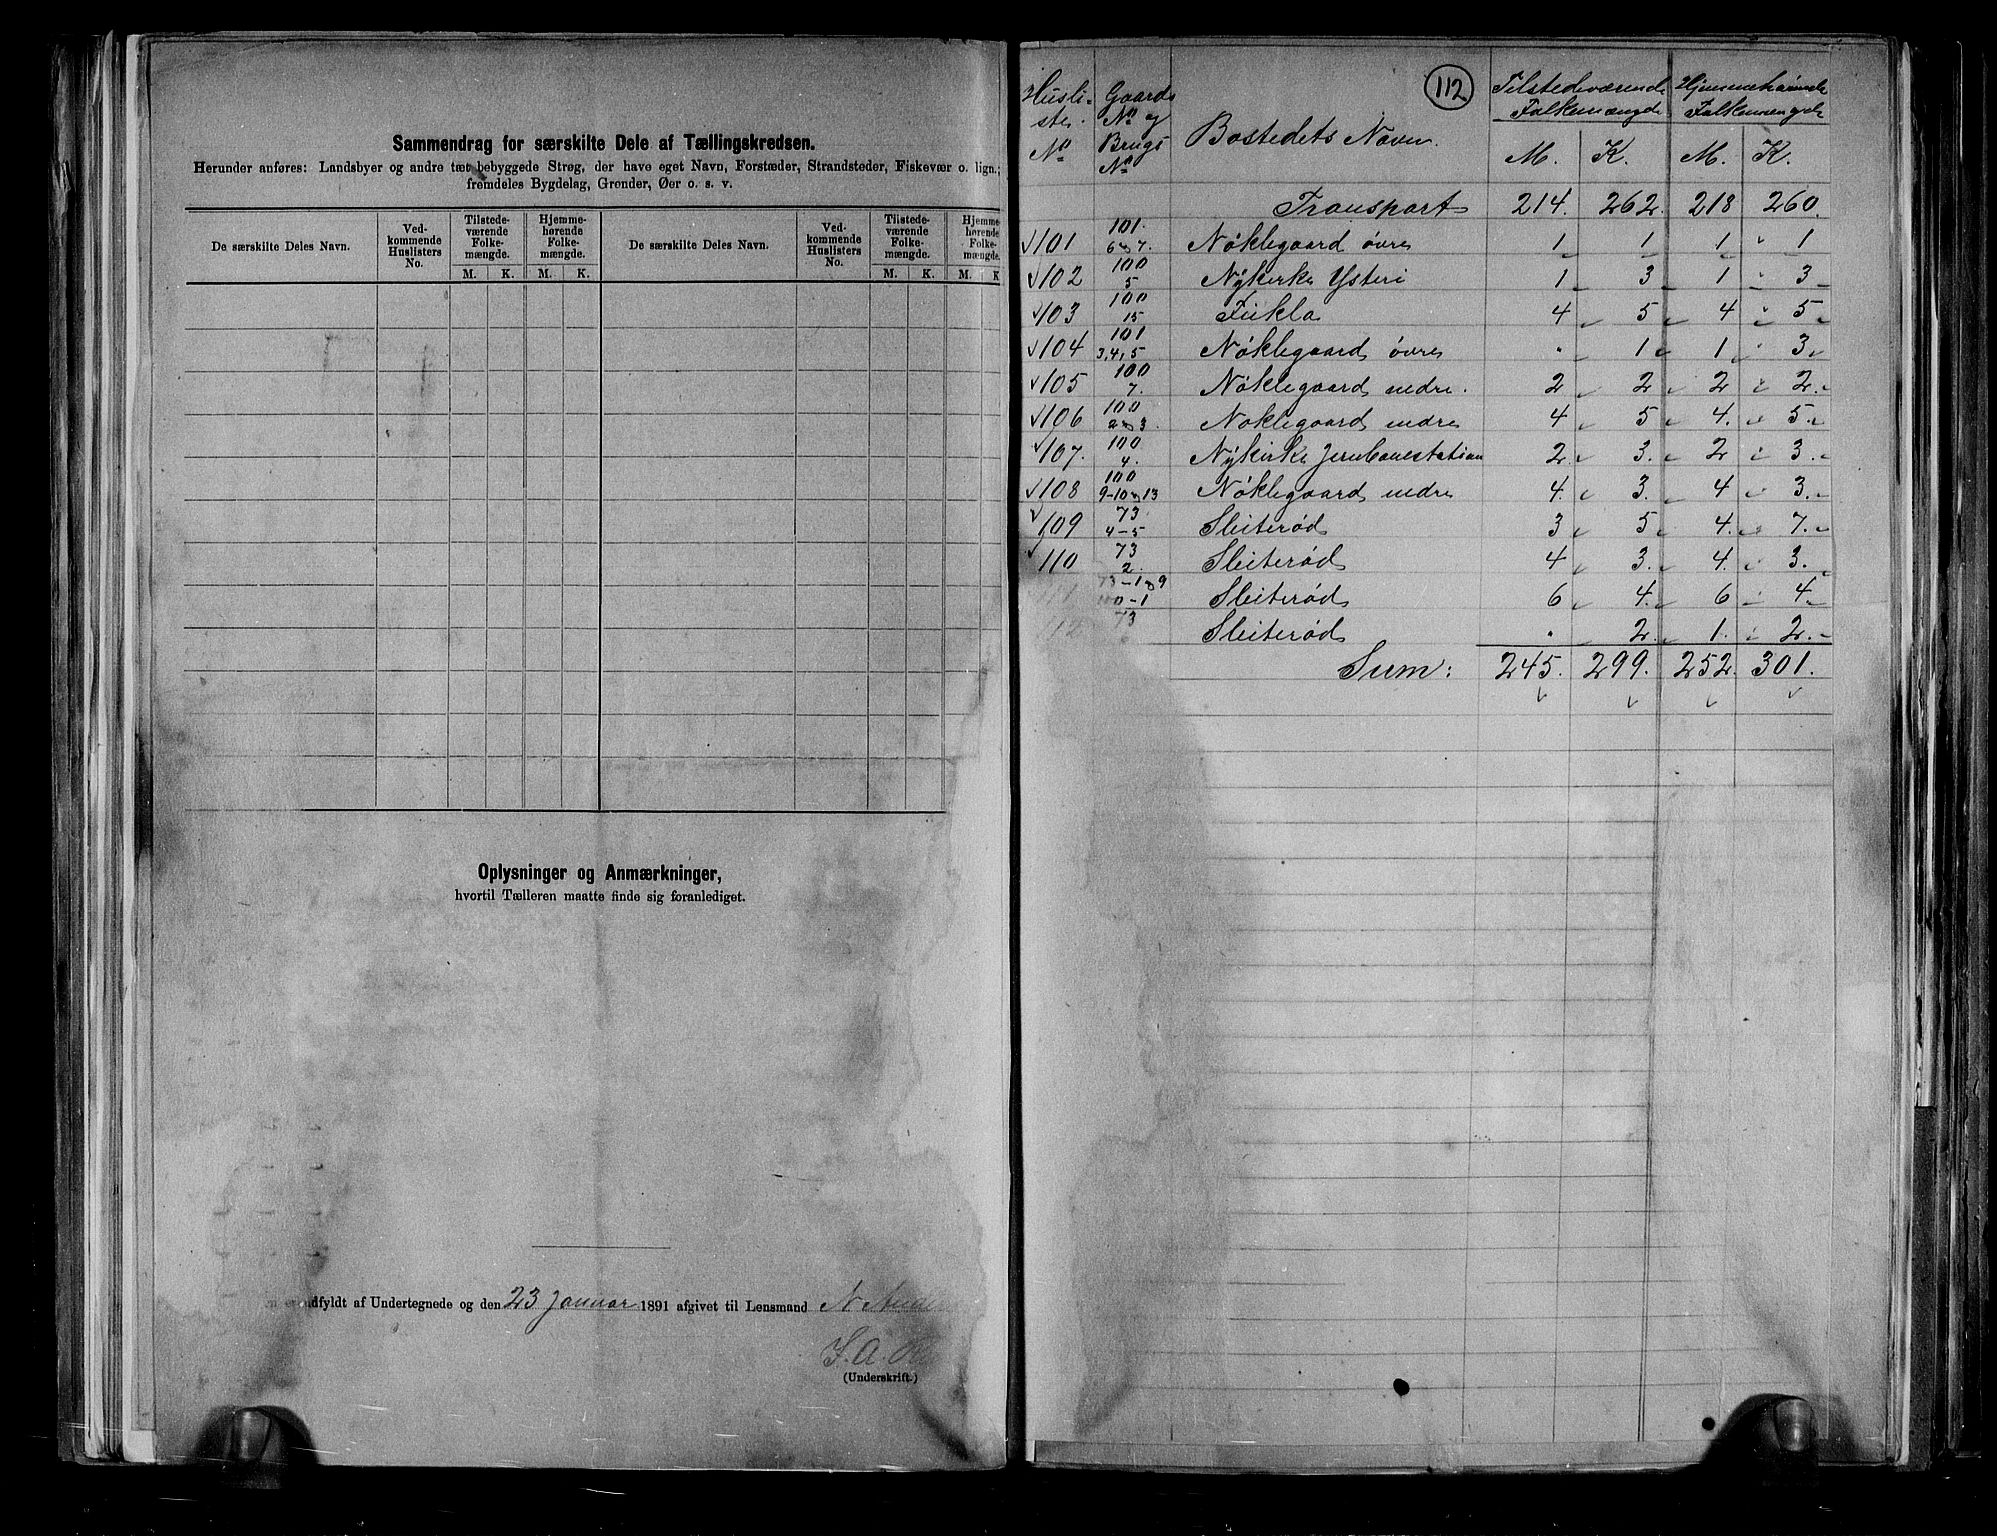 Sammendrag for særskilte Dele af Tællingskredsen.
Herunder anføres: Landsbyer og andre tæt bebyggede Strøg, der have eget Navn, Forstæder, Strandsteder, Fiskevær o. lign.;
fremdeles Bygdelag, Grender, Øer o. s. v.
De særskilte Deles Navn. Vedkommende Huslisters No. Tilstedeværende Folkemængde. Hjemmehørende Folkemængde. De særskilte Deles Navn. Vedkommende Huslisters No. Tilstedeværende Folkemængde. Hjemmehørende Folkemængde.
M. K. M. K. M. K. M. K
Oplysninger og Anmærkninger,
hvortil Tælleren maatte finde sig foranlediget.
udfyldt af Undertegnede og den 23 Januar 1891 afgivet til Lensmand N.
S. A.
(Underskrift.)
112
Husliste No Gaards No og Brugs No Bostedets Navn. Tilstedeværende Folkemængde Hjemmehørende Folkemængde
M. K. M. K.
Transport 214. 262. 218 260.
101 101. 6 og 7. Nøklegaard øvre 1 1 1 1
102 100 5 Nykirke Ysteri 1 3 1 3
103 100 15 Fukla 4 5 4 5
104 101 3,4,5 Nøklegaard øvre " 1 1 3
105 100 7. Nøklegaard nedre. 2 2 2 2
106 100 2 og 3. Nøklegaard nedre 4 5 4. 5
107. 100 4. Nykirke Jernbanestation 2 3. 2 3.
108 100 9-10 og 13 Nøklegaard nedre 4. 3. 4 3.
109 73 4-5 Sleiterød 3 5 4. 7.
110 73 2. Sleiterød 4 3. 4. 3.
111 73-1 og 9 100-1 Sleiterød 6 4. 6 4
112 73 Sleiterød " 2. 1. 2.
Sum: 245. 299. 252. 301.